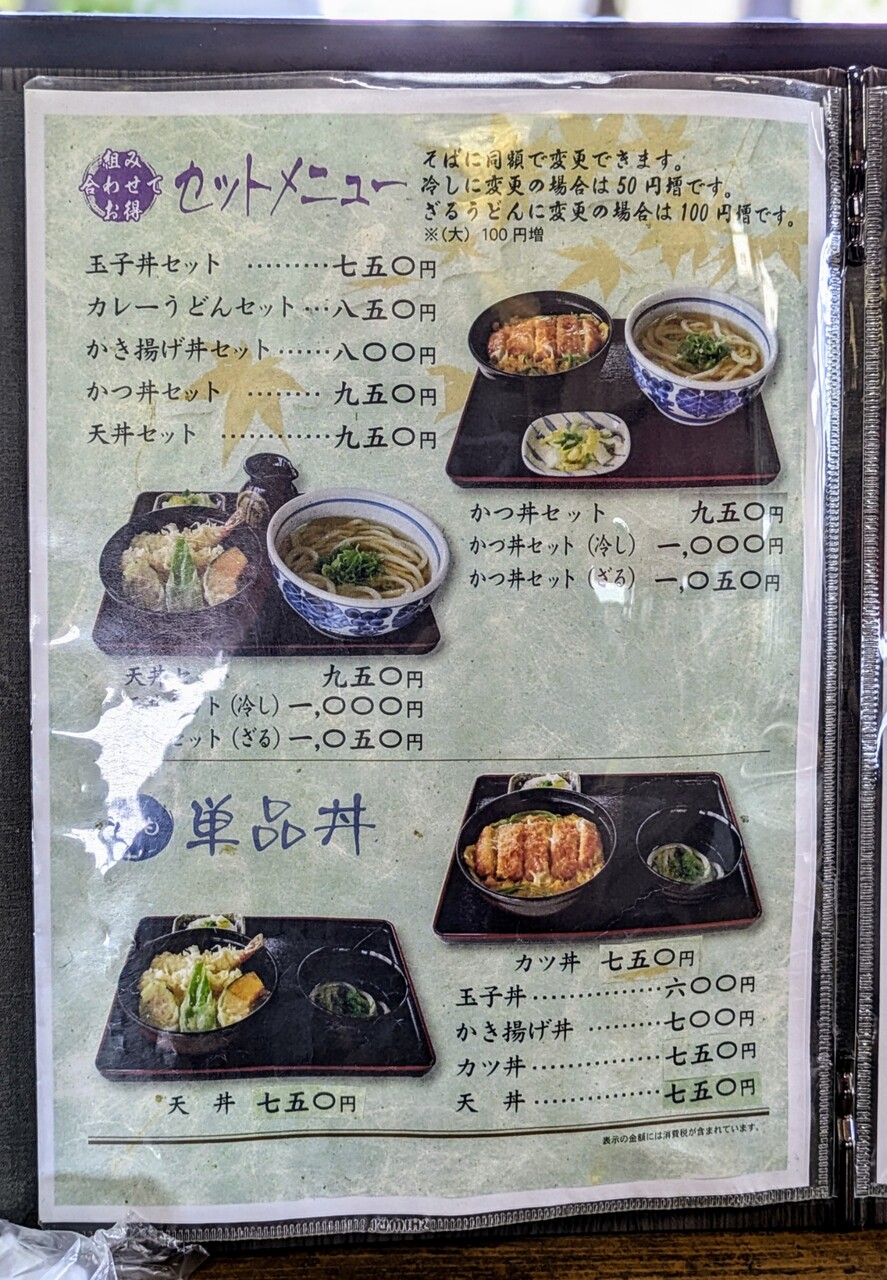 組み
合わせて
お得
セットメニュー
そばに同額で変更できます。
冷しに変更の場合は50円増です。
ざるうどんに変更の場合は100円増です。
※(大) 100円増
玉子丼セット ………七五〇円
カレーうどんセット…八五〇円
かき揚げ丼セット……八〇〇円
かつ丼セット ………九五〇円
天丼セット …………九五〇円
かつ丼セット 九五〇円
かつ丼セット(冷し) 一,〇〇〇円
かつ丼セット(ざる) 一,〇五〇円
天丼セ 九五〇円
ット(冷し) 一,〇〇〇円
セット(ざる) 一,〇五〇円
単品丼
カツ丼 七五〇円
玉子丼……………六〇〇円
かき揚げ丼 ………七〇〇円
カツ丼……………七五〇円
天 丼……………七五〇円
天 丼 七五〇円
表示の金額には消費税が含まれています。